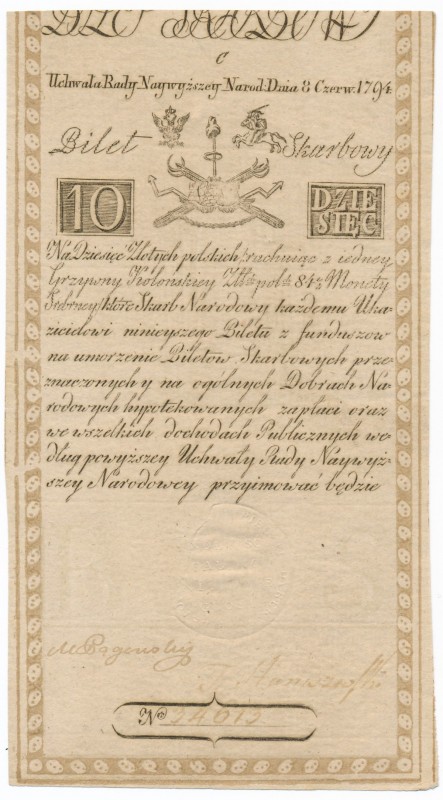 BILET SKARBOWY
C
Uchwała Rady Naywyższey Narod: Dnia 8 Czerw. 1794.
Bilet Skarbowy
10 DZIE
SIĘĆ
Na Dziesięc Złotych polskich, rachuiąc z iedney
Grzywny Kolonskiey Złł: pol: 84½ Monety
Srebrney, które Skarb Narodowy każdemu Uka-
zicielowi ninieyszego Biletu z funduszow
na umorzenie Biletow Skarbowych prze-
znaczonych y na ogólnych Dobrach Na-
rodowych hypotekowanych zapłaci oraz
we wszelkich dochodach Publicznych we-
dług powyższey Uchwały Rady Naywyż-
szey Narodowey przyimować będzie
No 34613